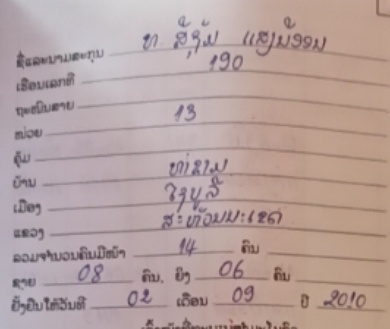 ຊື່ແລະນາມສະກຸນ ທ ສຸ້ຈັນ ແສງມີອອນ
ເຮືອນເລກທີ 190
ຖະໜົນສາຍ
ໜ່ວຍ 13
ຄຸ້ມ
ບ້ານ ທ່າຂາມ
ເມືອງ ໄຊບູລີ
ແຂວງ ສະຫວັນນະເຂດ
ລວມຈຳນວນຄົນມີໜ້າ 14 ຄົນ
ຊາຍ 08 ຄົນ. ຍິງ 06 ຄົນ
ຍັ້ງຢືນໃຫ້ວັນທີ 02 ເດືອນ 09 ປີ 2010